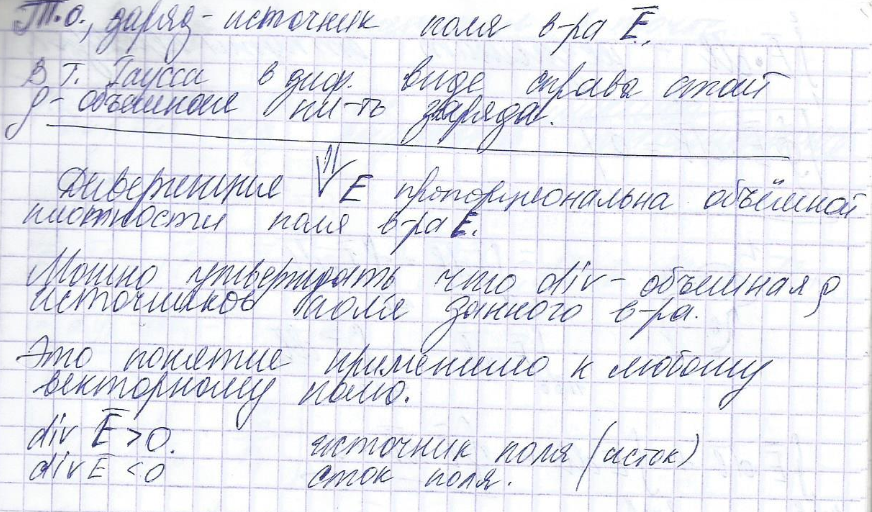 Т.о., заряд - источник поля в-ра E̅.
В Т. Гаусса в диф. виде справа стоит
ρ - объемная пл-ть заряда.
Дивергенция E пропорциональна объёмной
плотности поля в-ра E̅.
Можно утверждать что div - объемная ρ
источников поля данного в-ра.
Это понятие применимо к любому
векторному полю.
div E̅ > 0. источник поля (исток)
div E̅ < 0 сток поля.